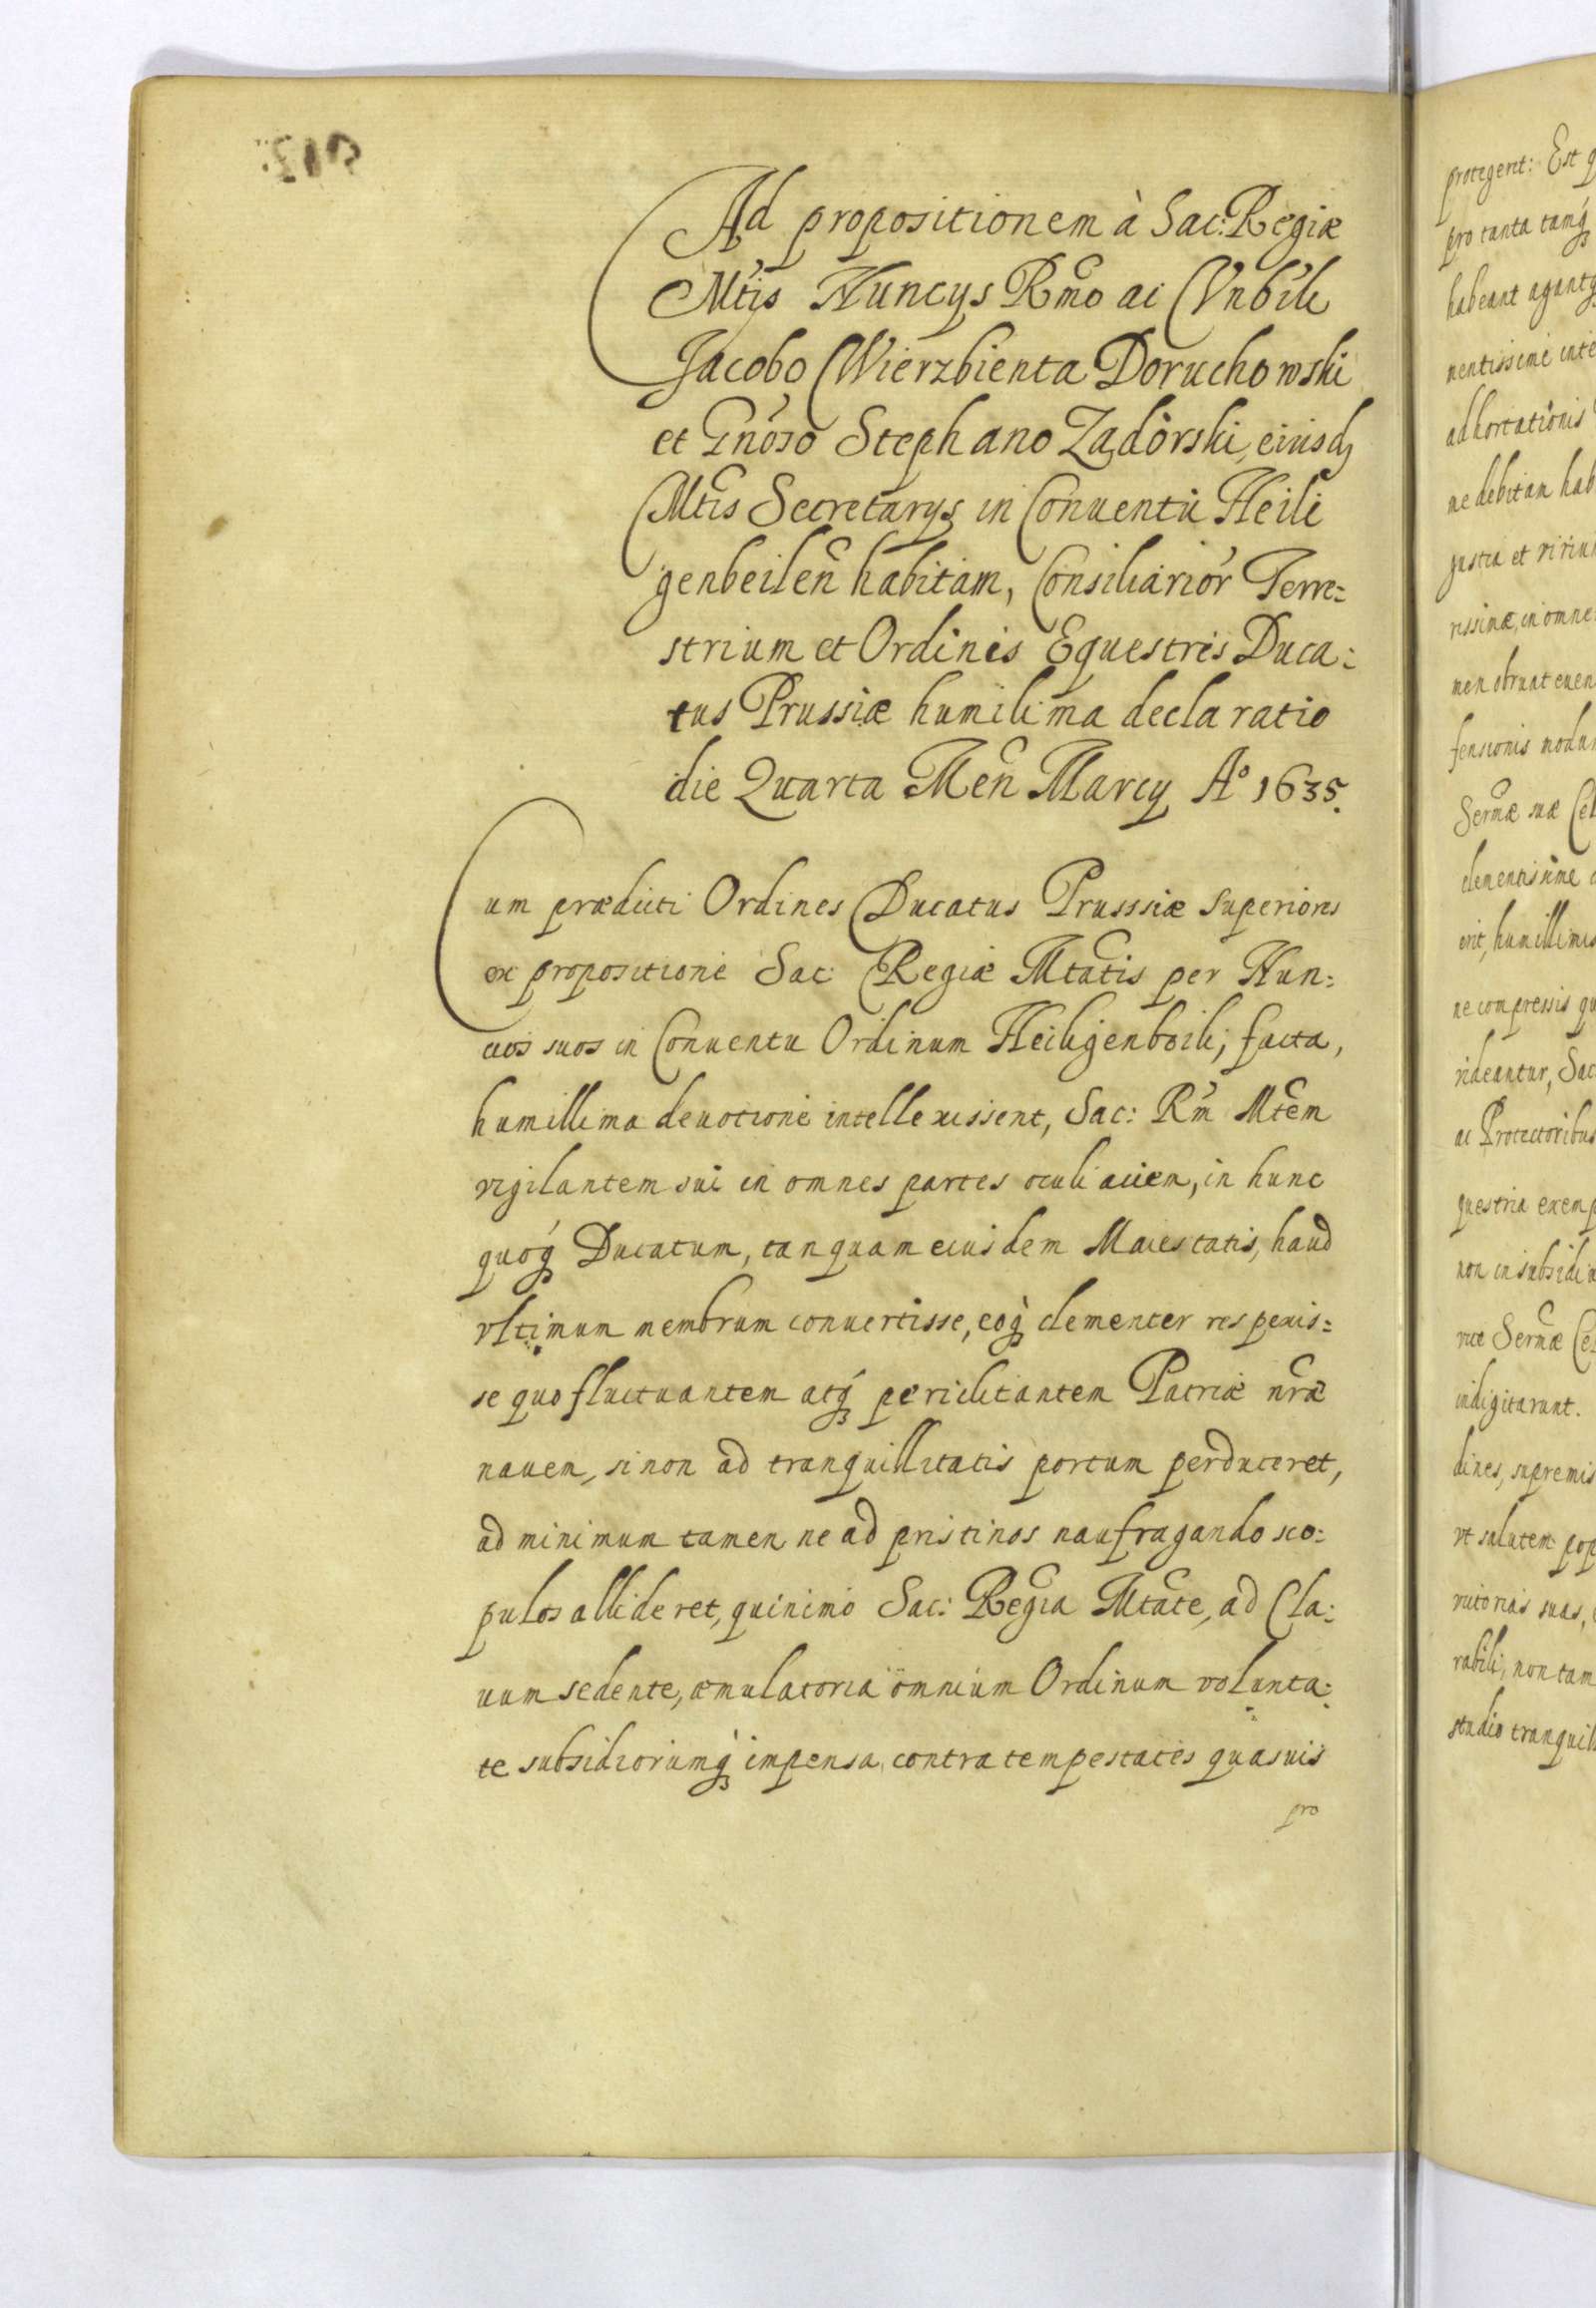 Ad propositionem à Sac: Regiæ
Mtis Nuncys Rmo ac Vrbili
Jacobo Wierzbienta Doruchowski
et Gnoso Stephano Zadorski, eiusdꝫ
Mtis Secretarys in Conuentu Heili
genbeilen habitam, Consiliarior Terre=
strium et Ordinis Equestris Duca=
tus Prussiæ humilima declaratio
die Quarta Men Marcy Aº 1635.
Cum prædicti Ordines Ducatus Prusssiæ superiores
ex propositione Sac: Regiæ Mtatis per Nun=
cios suos in Conuentu Ordinum Heiligenboili, facta,
humillima deuotione intellexissent, Sac: Rm Mtem
vigilantem sui in omnes partes oculi aciem, in hunc
quoq́ꝫ Ducatum, tanquam eiusdem Maiestatis, haud
vltimum membrum conuertisse, eoq̀ꝫ clementer respexis=
se quo fluctuantem atq́ꝫ periclitantem Patriæ nræ
nauem, si non ad tranquillitatis portum perduceret,
ad minimum tamen ne ad pristinos naufragando sco=
pulos allideret, quinimo Sac: Regia Mtate, ad Cla=
uum sedente, æmulatoria omnium Ordinum volunta=
te subsidiorumq̀ꝫ impensa, contra tempestates quasuis
pro
protegerit: Est q
pro tanta tamq́ꝫ
habeant agantq
nentissime inte
adhortationis
ne debitam hab
gustia et viriu
rissinæ, in omne
men obruat euen
fensionis modu
Sermæ suæ Cel
clementissime
erit, humillimis
ne compressis qu
videantur, Sac
ac Protectoribus
questria exemp
non in subsidi
vice Sermæ Cel
indigitarunt.
dines, supremis
vt salutem pop
ritorias suas,
rabili, non tam
studio tranquil